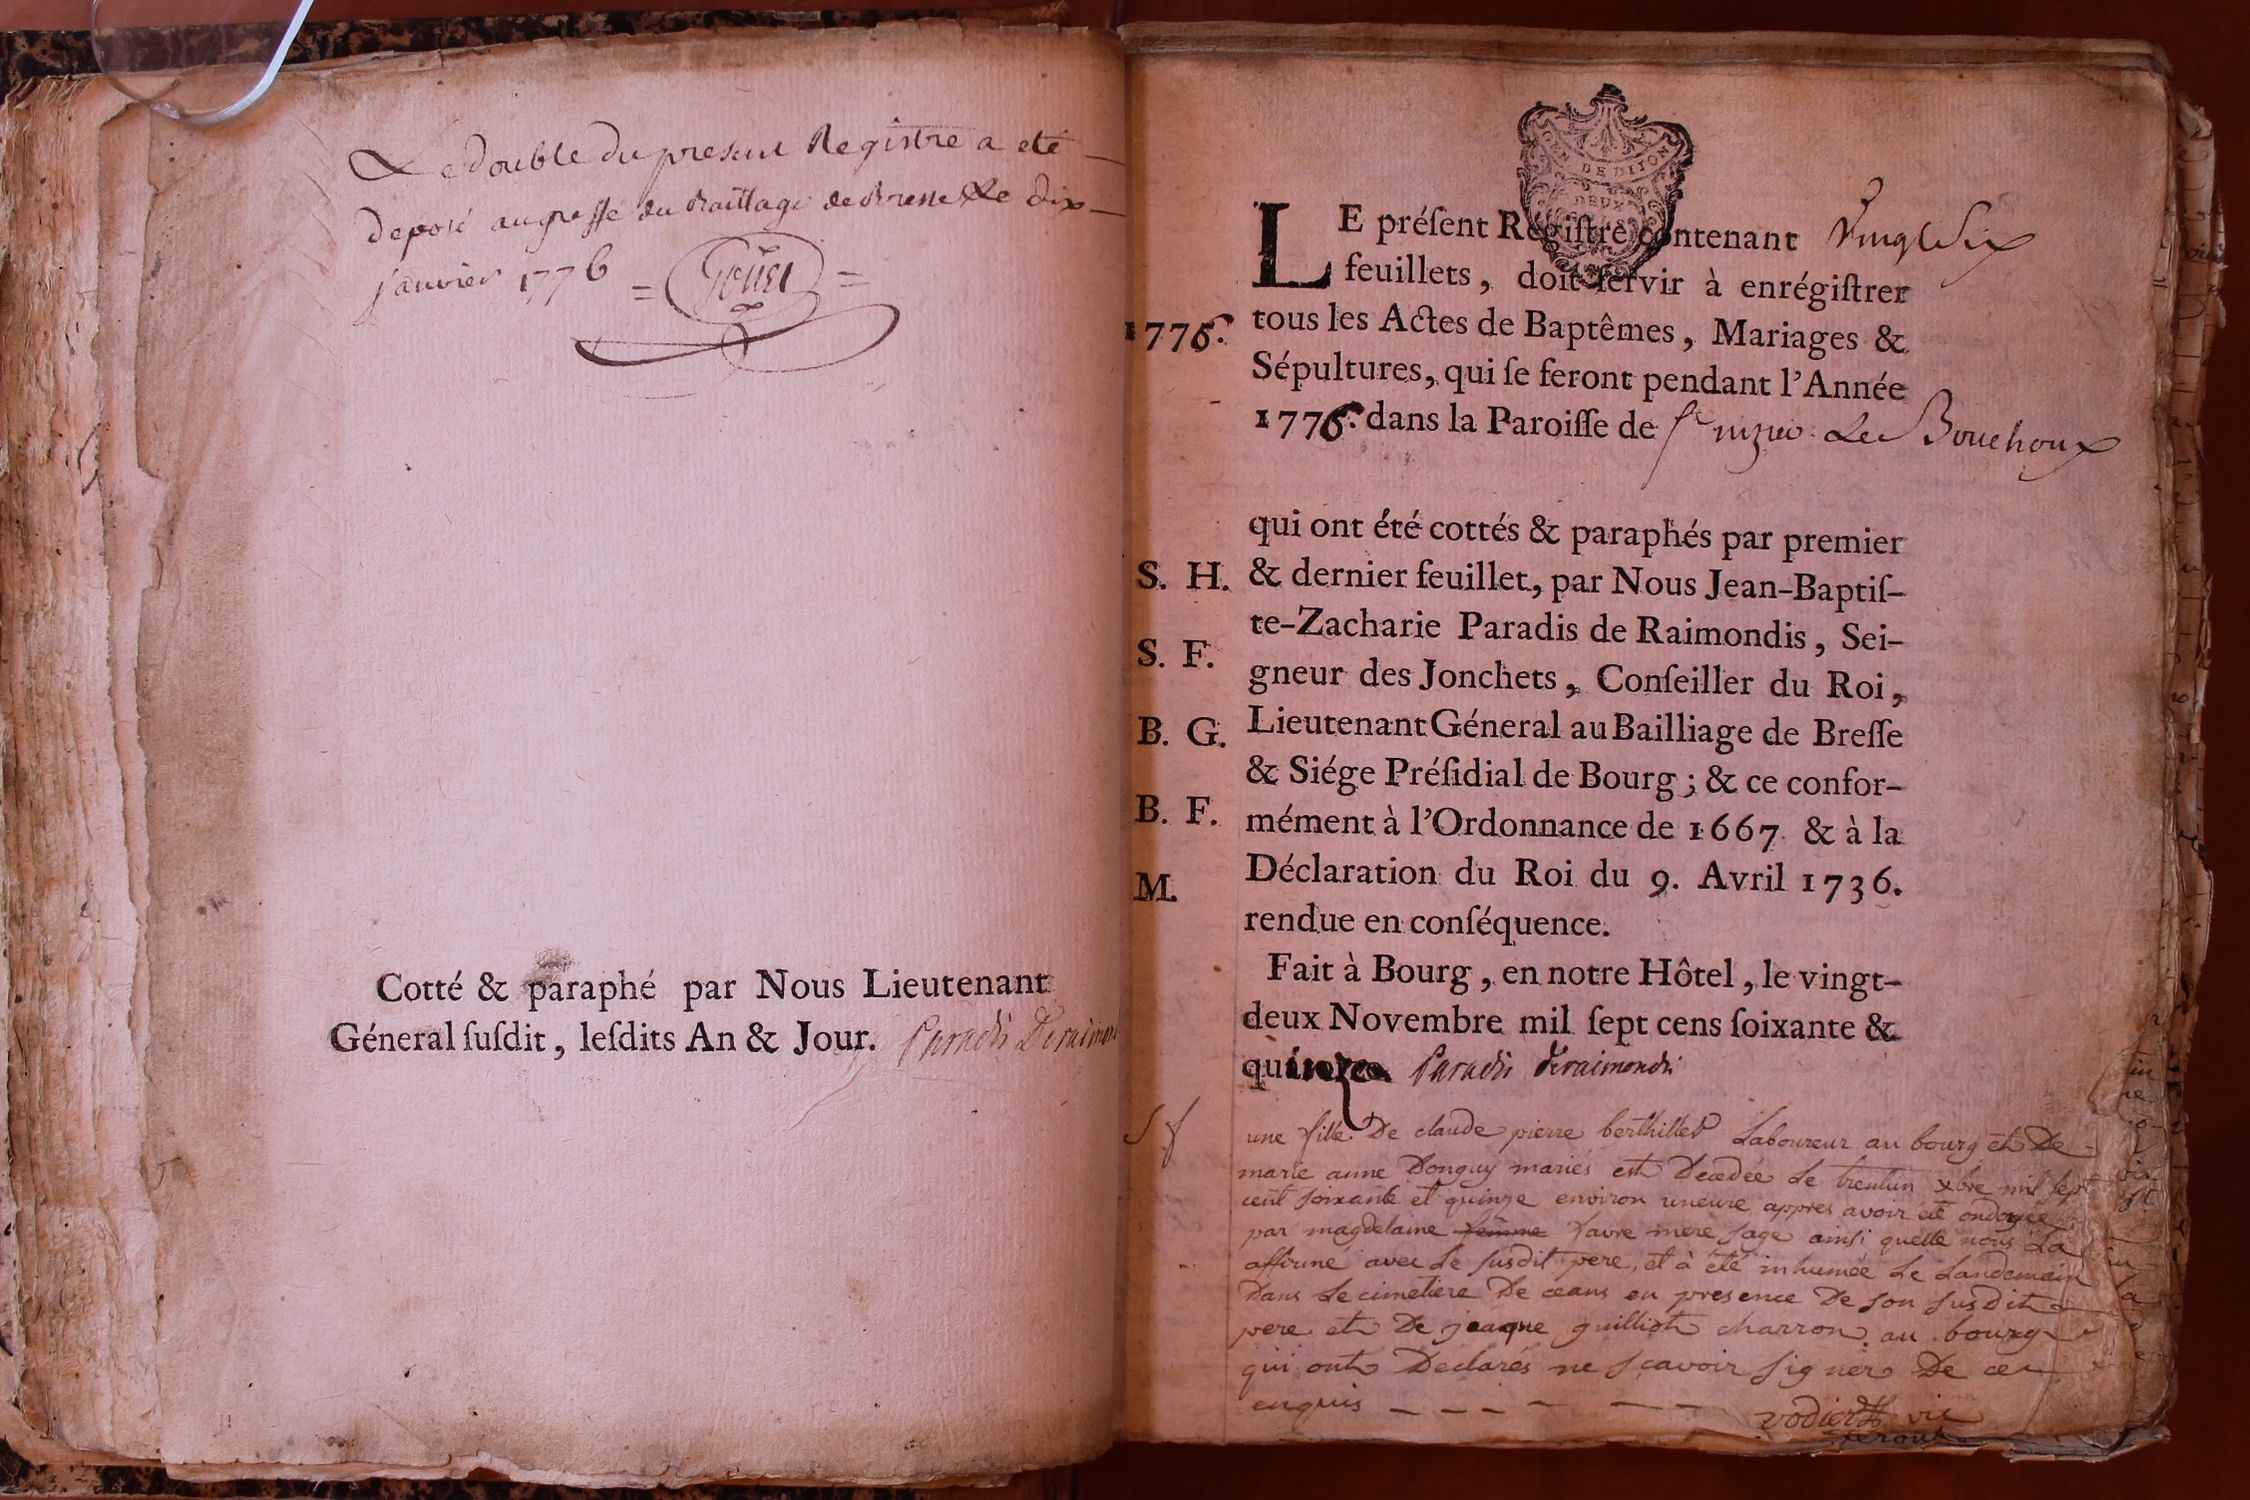 Le double du present Registre a eté
deposé au greffe du Bailliage de Bresse Le dix
janvier 1776 =       =
Cotté & paraphé par Nous Lieutenant
Géneral ſuſdit, leſdits An & Jour. Paradis Deraimon
GEN DE DIJON
DEUX
LE préſent Regiſtre contenant Vingt Six
feuillets, doit ſervir à enrégiſtrer
1776. tous les Actes de Baptêmes, Mariages &
Sépultures, qui ſe feront pendant l'Année
1776. dans la Paroiſſe de St nizier Le Bouchoux
qui ont été cottés & paraphés par premier
S. H. & dernier feuillet, par Nous Jean-Baptiſ-
te-Zacharie Paradis de Raimondis, Sei-
S. F. gneur des Jonchets, Conſeiller du Roi,
B. G. Lieutenant Géneral au Bailliage de Breſſe
& Siége Préſidial de Bourg; & ce confor-
B. F. mément à l'Ordonnance de 1667. & à la
M. Déclaration du Roi du 9. Avril 1736.
rendue en conſéquence.
Fait à Bourg, en notre Hôtel, le vingt-
deux Novembre mil ſept cens ſoixante &
quinze Paradis Deraimondis
S f une fille De claude pierre berthillet Laboureur au bourg et De
marie anne Donguy mariés est Decedée Le trentun xbre mil sept
cent soixante et quinze environ uneure appres avoir eté ondoyée
par magdelaine femme favre mere sage ainsi quelle nous La
affirmé avec Le susdit pere, et à eté inhumée Le Landemain
Dans Le cimetiere De ceans en presence De son susdit
pere et De jeaque guilliot charron au bourg
qui ont Déclarés ne sçavoir signer De ce
enquis _ _ _ _ _ _
vodier vic